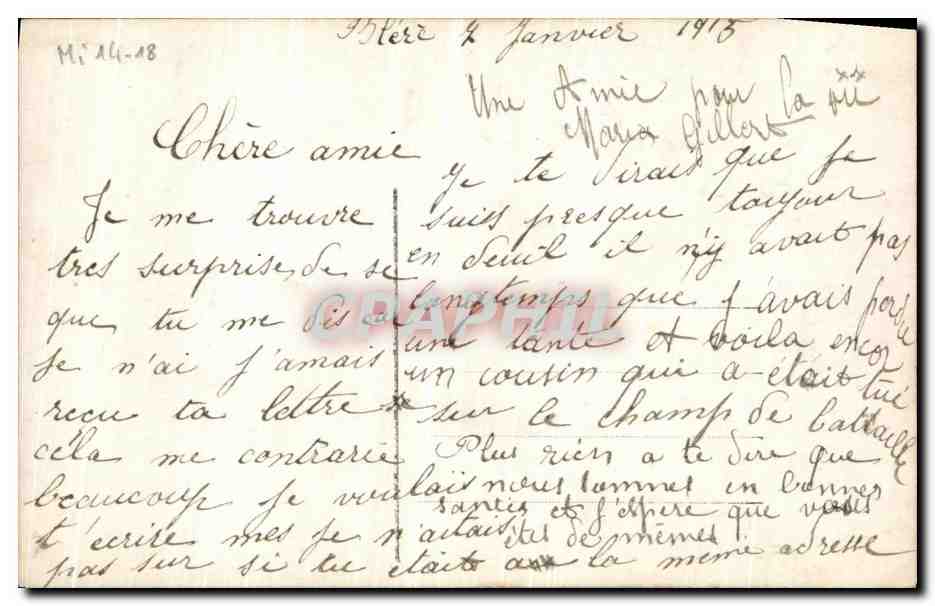 Mi 14-18
Bléré 2 Janvier 1915
Une Amie pour la vie
Maria Gillert
Chère amie
Je me trouvre
tres surprise de se
que tu me dis car
je n'ai j'amais
recu ta lettre
cela me contrarie
beaucoup je voulais
t'écrire mes je n'aitais
pas sur si tu etait a la meme adresse
Je te dirais que je
suis presque toujour
en deuil il n'y avait pas
longtemps que j'avais perdue
une tante et voila encor
un cousin qui a était tué
sur le champ de bataille
Plus rien a te dire que
nous sommes en bonnes
santés et j'éspere que vous
êtes de mêmes
CPAPHIL